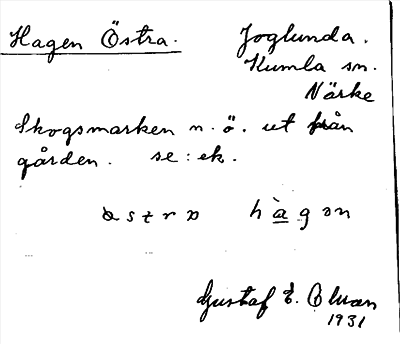 Hagen Östra. Joglunda.
Kumla sn.
Närke
Skogsmarken n.ö. ut från
gården. se: ek.
ɷstrɷ hàgɷn
Gustaf E. Olsson
1931